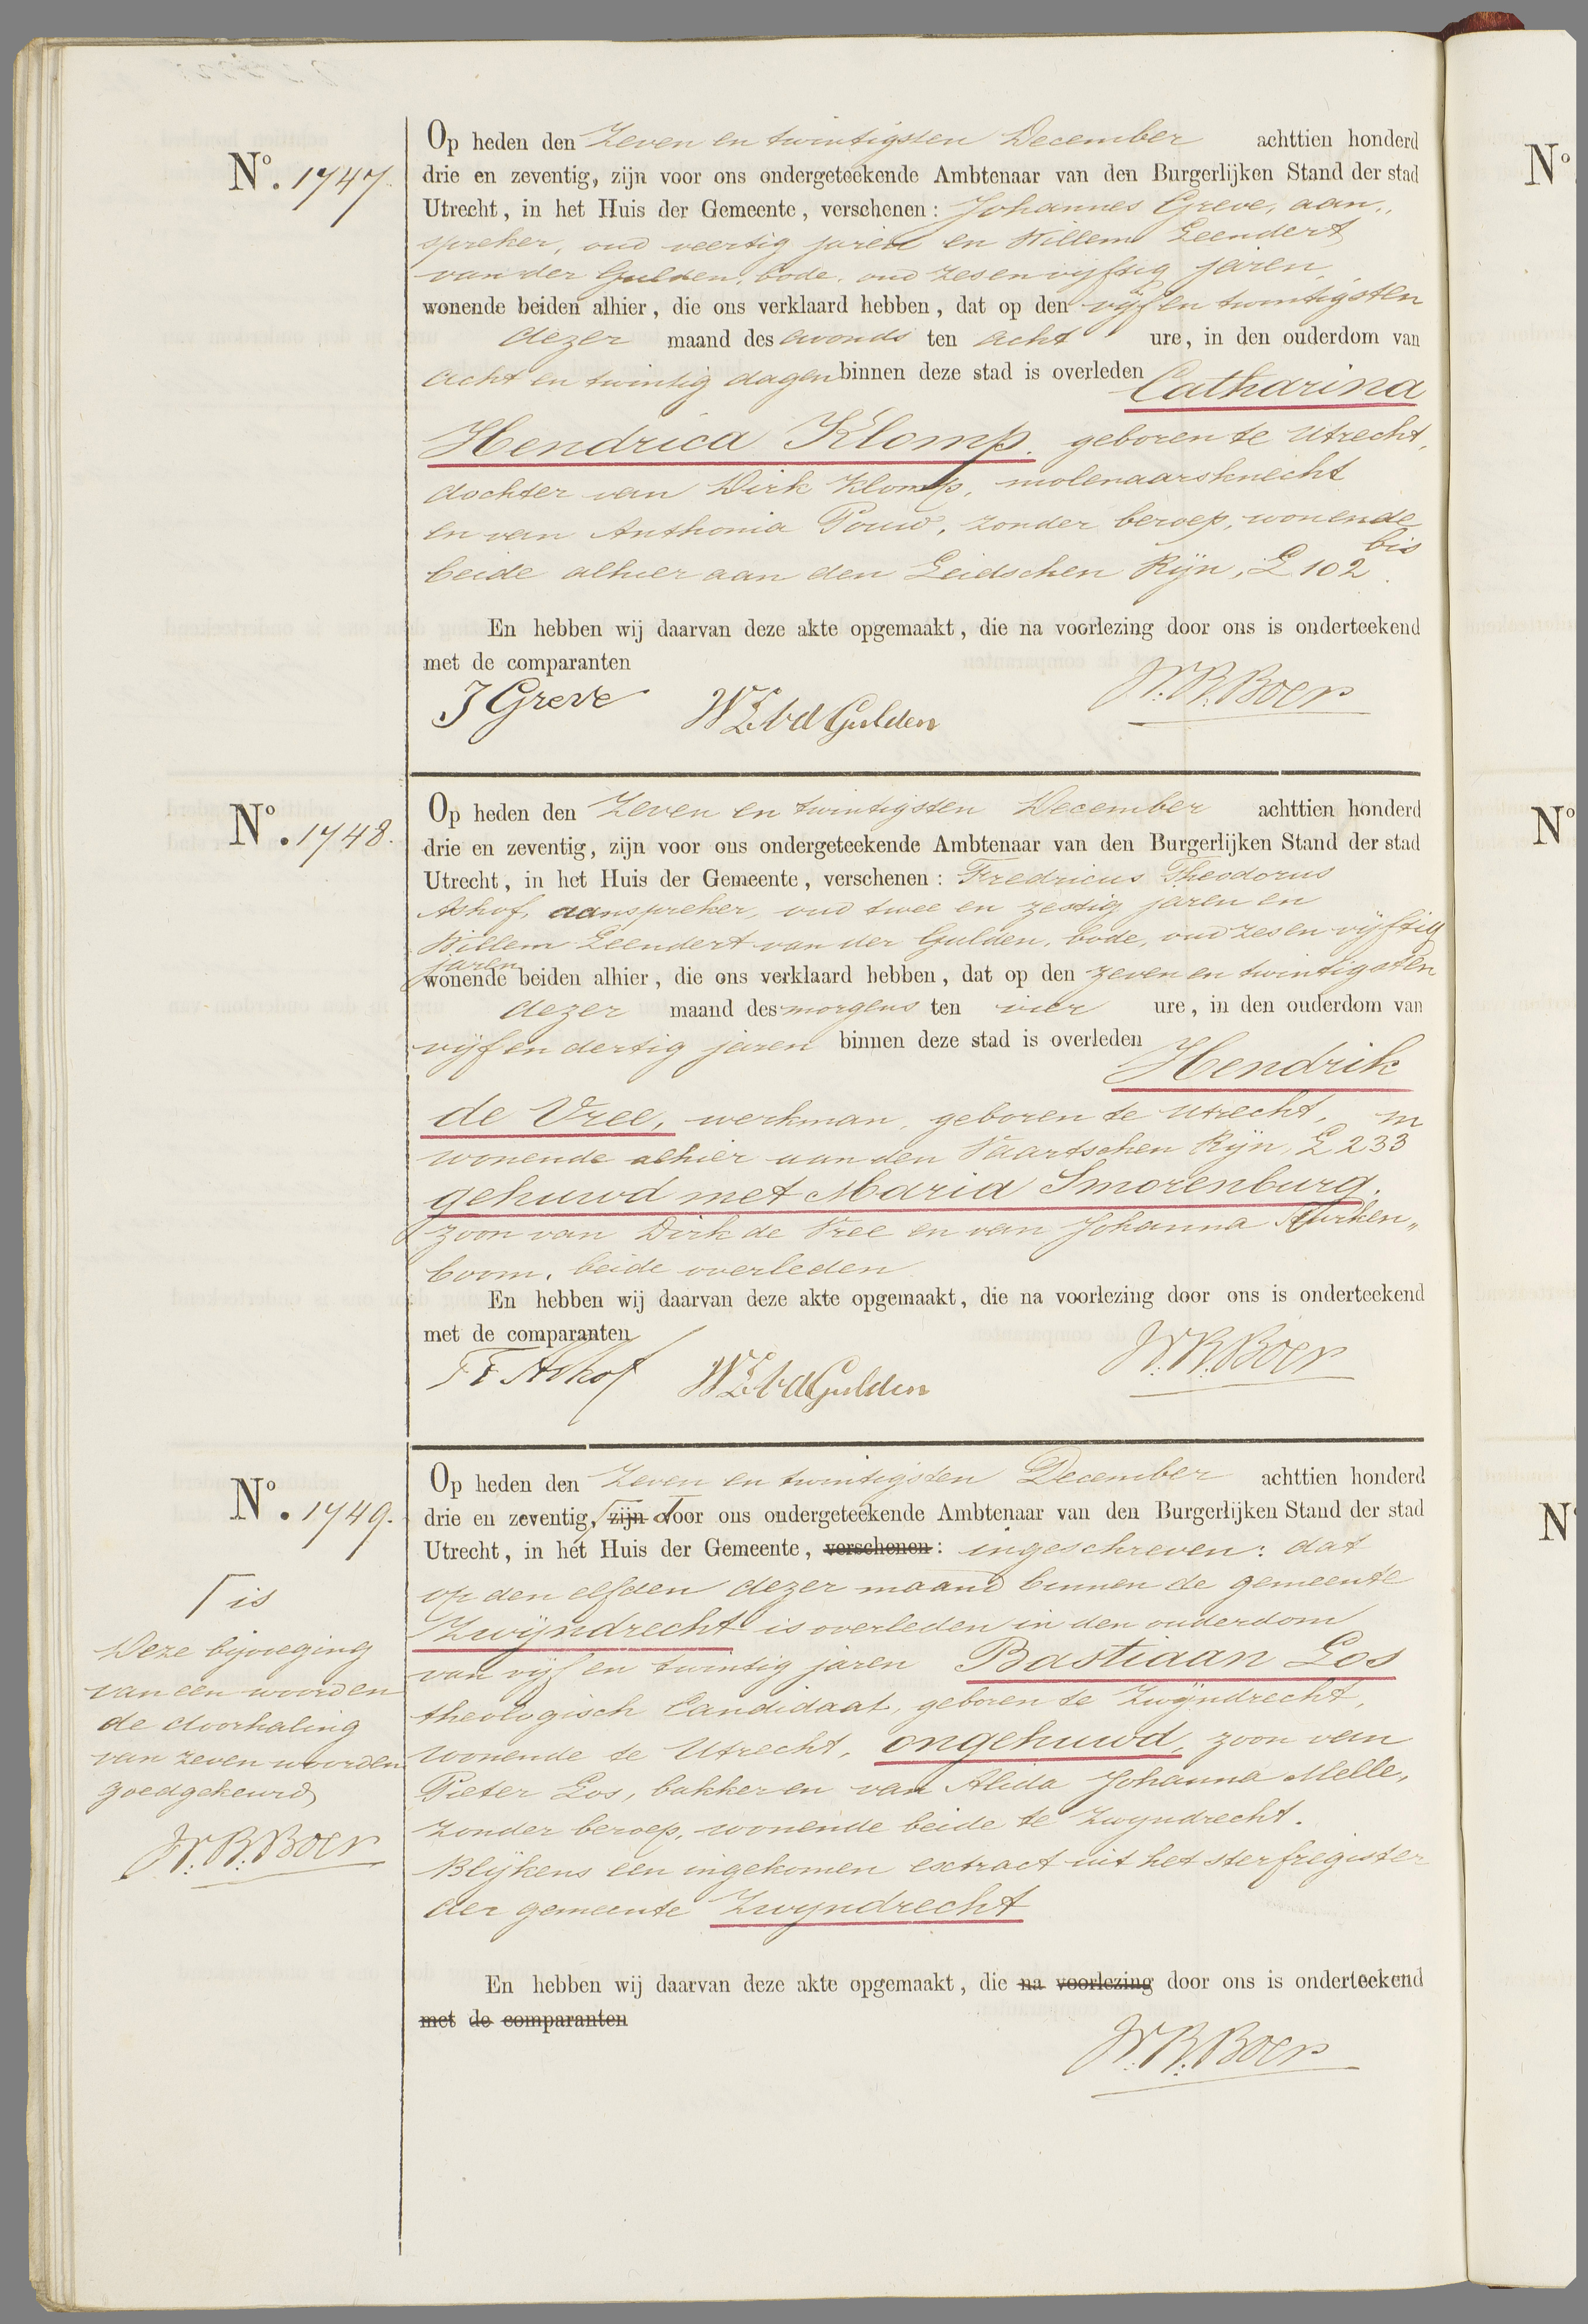 Nº. 1747.
Op heden den Zeven en twintigsten December achttien honderd
drie en zeventig, zijn voor ons ondergeteekende Ambtenaar van den Burgerlijken Stand der stad
Utrecht, in het Huis der Gemeente, verschenen: Johannes Greve, aan„
spreker, oud veertig jaren en Willem Leendert
van der Gulden, bode, oud zes en vijftig jaren,
wonende beiden alhier, die ons verklaard hebben, dat op den vijf en twintigsten
dezer maand des avonds ten acht ure, in den ouderdom van
acht en twintig dagen binnen deze stad is overleden Catharina
Hendrica Klomp, geboren te Utrecht,
dochter van Dirk Klomp, molenaarsknecht
en van Anthonia Pouw, zonder beroep, wonende
beide alhier aan den Leidschen Rijn, L 102 bis.
En hebben wij daarvan deze akte opgemaakt, die na voorlezing door ons is onderteekend
met de comparanten
J Greve WLvdGulden W.B.Boer
Nº. 1748.
Op heden den Zeven en twintigsten December achttien honderd
drie en zeventig, zijn voor ons ondergeteekende Ambtenaar van den Burgerlijken Stand der stad
Utrecht, in het Huis der Gemeente, verschenen: Fredricus Theodorus
Ashof, aanspreker, oud twee en zestig jaren en
Willem Leendert van der Gulden, bode, oud zes en vijftig
jaren
wonende beiden alhier, die ons verklaard hebben, dat op den zeven en twintigsten
dezer maand des morgens ten vier ure, in den ouderdom van
vijf en dertig jaren binnen deze stad is overleden Hendrik
de Vree, werkman, geboren te Utrecht,
wonende alhier aan den Vaartschen Rijn, L 233 m
gehuwd met Maria Smorenburg.
zoon van Dirk de Vree en van Johanna
boom, beide overleden
En hebben wij daarvan deze akte opgemaakt, die na voorlezing door ons is onderteekend
met de comparanten
F T Ashof WLvdGulden W.B.Boer
Nº. 1749.
Op heden den Zeven en twintigsten December achttien honderd
drie en zeventig, zijn door ons ondergeteekende Ambtenaar van den Burgerlijken Stand der stad
Utrecht, in het Huis der Gemeente, verschenen: ingeschreven: dat
op den elfden dezer maand binnen de gemeente
Zwijndrecht is overleden in den ouderdom
van vijf en twintig jaren Bastiaan Los
theologisch Candidaat, geboren te Zwijndrecht,
wonende te Utrecht, ongehuwd, zoon van
Pieter Los, bakker en van Alida Johanna Melle,
zonder beroep, wonende beide te Zwijndrecht.
Blijkens een ingekomen extract uit het sterfregister
der gemeente Zwijndrecht
En hebben wij daarvan deze akte opgemaakt, die na voorlezing door ons is onderteekend
met de comparanten
W.B.Boer
is
Deze bijvoeging
van een woord en
de doorhaling
van zeven woorden
goedgekeurd
W.B.Boer
Nº
Nº
Nº